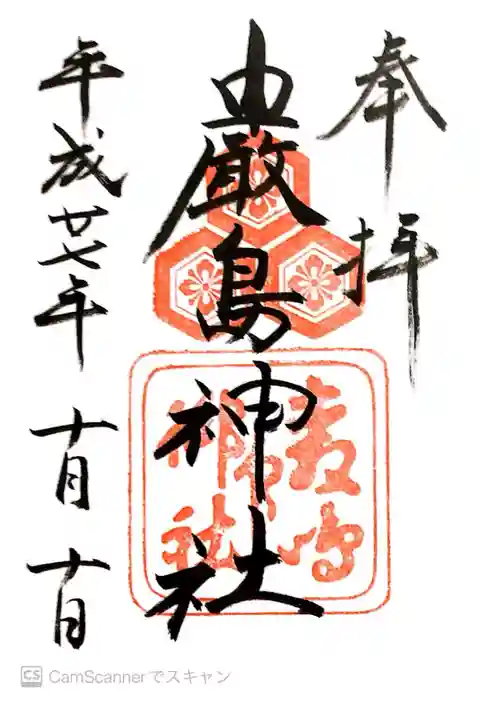 奉拝
厳島神社
平成廿七年十月十日
厳島
神社
CS CamScannerでスキャン